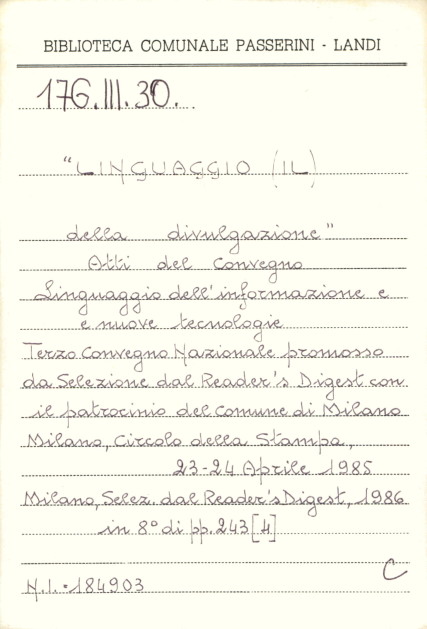 BIBLIOTECA COMUNALE PASSERINI - LANDI
176.III.30.
"LINGUAGGIO (IL)
della divulgazione"
Atti del Convegno
Linguaggio dell'informazione e
e nuove tecnologie
Terzo Convegno Nazionale promosso
da Selezione dal Reader's Digest con
il patrocinio del Comune di Milano
Milano, Circolo della Stampa,
23-24 Aprile 1985
Milano, Selez. dal Reader's Digest, 1986
in 8° di pp. 243 [4]
C
N.I. = 184903